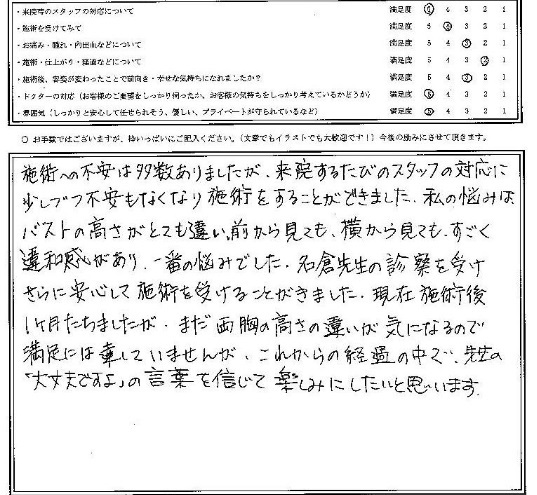 ・来院時のスタッフの対応について 満足度 5 4 3 2 1
・施術を受けてみて 満足度 5 4 3 2 1
・お痛み・腫れ・内出血などについて 満足度 5 4 3 2 1
・施術・仕上がり・経過などについて 満足度 5 4 3 2 1
・施術後、容姿が変わったことで前向き・幸せな気持ちになれましたか? 満足度 5 4 3 2 1
・ドクターの対応(お客様のご要望をしっかり伺ったか、お客様の気持ちをしっかり考えているかどうか) 満足度 5 4 3 2 1
・雰囲気(しっかりと安心して任せられそう、優しい、プライベートが守られているなど) 満足度 5 4 3 2 1
○ お手数ではございますが、枠いっぱいにご記入ください。(文章でもイラストでも大歓迎です!)今後の励みにさせて頂きます。
施術への不安は多数ありましたが、来院するたびのスタッフの対応に
少しづつ不安もなくなり施術をすることができました。私の悩みは
バストの高さがとても違い、前から見ても、横から見ても、すごく
違和感があり、一番の悩みでした。名倉先生の診察を受け
さらに安心して施術を受けることがきました。現在施術後
1ヶ月たちましたが、まだ両胸の高さの違いが気になるので
満足には達していませんが、これからの経過の中で、先生の
「大丈夫ですよ」の言葉を信じて楽しみにしたいと思います。